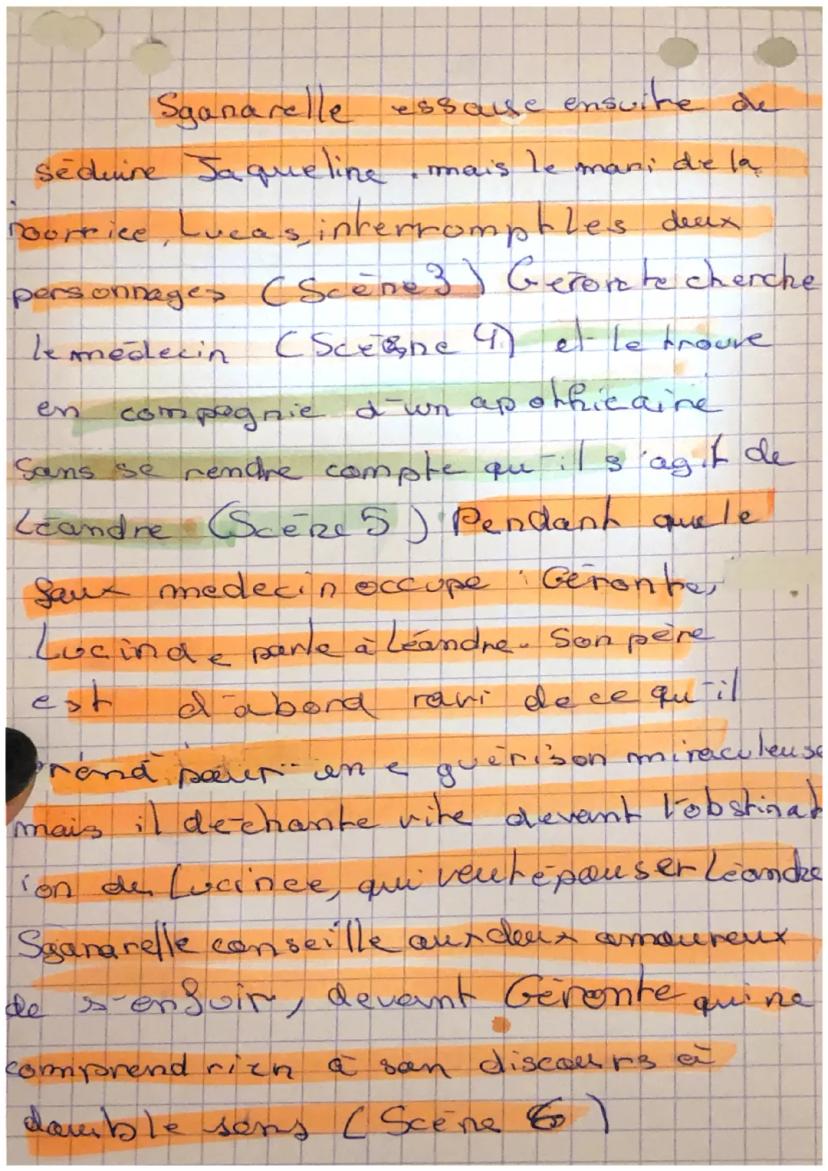 Sganarelle essaye ensuite de
séduire Jaqueline. mais le mari de la
nourrice, Lucas, interrompt les deux
personnages (Scène 3) Géronte cherche
le médecin (Scène 4) et le trouve
en compagnie d'un apothicaire
sans se rendre compte qu'il s'agit de
Léandre (Scène 5) Pendant que le
faux medecin occupe Géronte,
Lucinde parle à Léandre. Son père
est d'abord ravi de ce qu'il
prend pour une guérison miraculeuse
mais il déchante vite devant l'obstinat
ion de Lucinee, qui veut épouser Léandre
Sganarelle conseille aux deux amoureux
de s'enfuir, devant Géronte qui ne
comprend rien à son discours à
double sens (Scène 6)